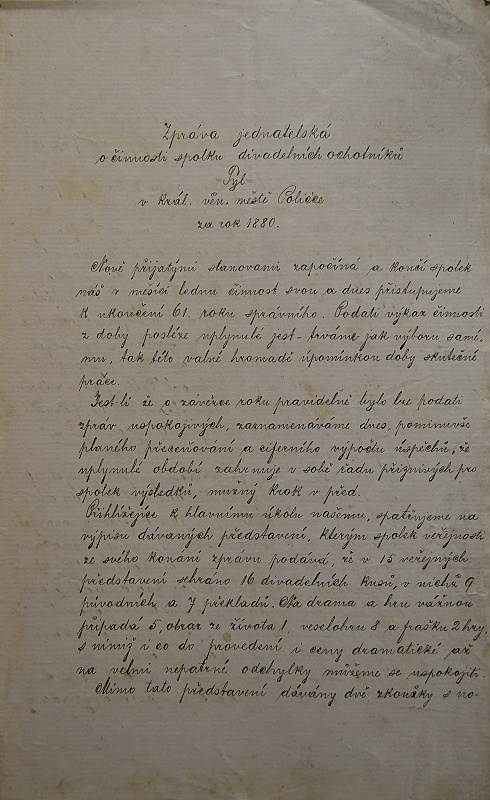 Zpráva jednatelská
o činnosti spolku divadelních ochotníků
Tyl
v král. věn. městě Poličce
za rok 1880.
Nově přijatými stanovami započíná a končí spolek
náš v měsíci lednu činnost svou a dnes přistupujeme
k ukončení 61. roku správního. Podati výkaz činnosti
z doby posléze uplynulé jest - trváme jak výboru samé-
mu, tak této valné hromadě upomínkou doby skutečné
práce.
Jest-li že o závěrce roku pravidelně bylo lze podati
zpráv uspokojivých, zaznamenáváme dnes, pominuvše
planého přeceňování a ciferního výpočtu úspěchů, že
uplynulé období zahrnuje v sobě řadu příznivých pro
spolek výsledků, mužný krok v před.
Přihlížejíce k hlavnímu úkolu našemu, spatřujeme na
výpisu dávaných představení, kterým spolek veřejnosti
ze svého konání zprávu podává, že v 15 veřejných
představení sehráno 16 divadelních kusů, v nichž 9
původních a 7 překladů. Na drama a hru vážnou
připadá 5, obraz ze života 1, veselohru 8 a frašku 2 hry,
s nimiž i co do provedení i ceny dramatické až
na velmi nepatrné odchylky můžeme se uspokojiti.
Mimo tato představení dávány dvě zkoušky s no-